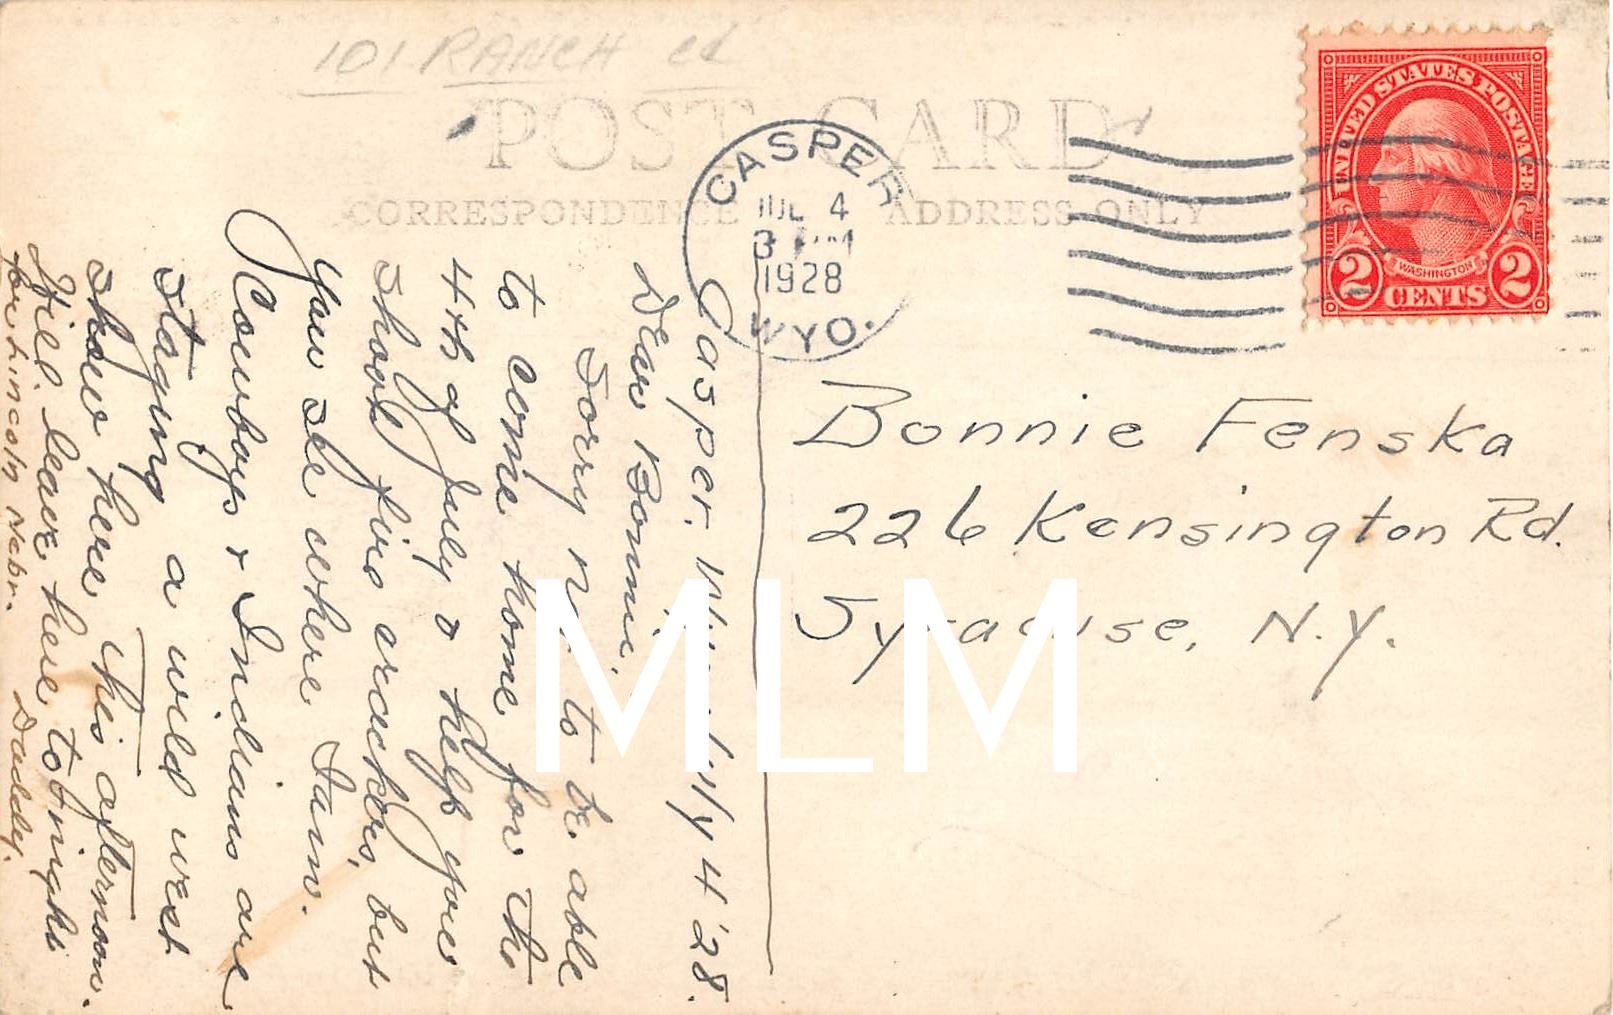 101 RANCH
POST CARD
CORRESPONDENCE
ADDRESS ONLY
CASPER
JUL 4
3 PM
1928
WYO.
UNITED STATES POSTAGE
WASHINGTON
2 CENTS 2
Bonnie Fenska
226 Kensington Rd.
Syracuse, N.Y.
Casper, July 4 '28.
Dear Bonnie,
Sorry not to be able
to come home for the
4th of July & help you
shoot fire crackers, but
you see where I am.
Cowboys & Indians are
staging a wild west
show here this afternoon.
Will leave here tonight
for Lincoln Nebr. Daddy.
MLM